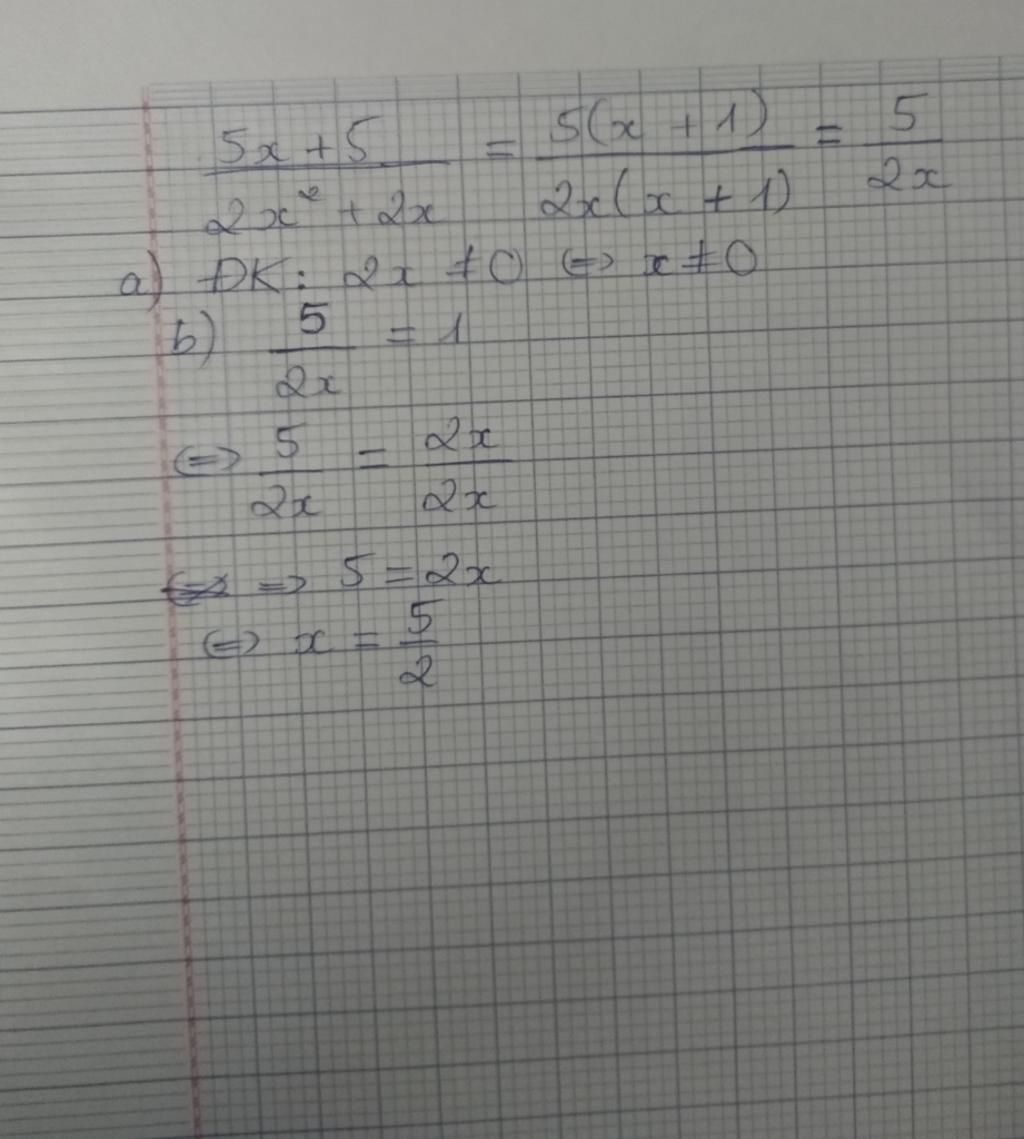 5x + 5 / 2x² + 2x = 5(x + 1) / 2x(x + 1) = 5 / 2x
a) ĐK: 2x ≠ 0 <=> x ≠ 0
b) 5 / 2x = 1
<=> 5 / 2x = 2x / 2x
=> 5 = 2x
<=> x = 5 / 2